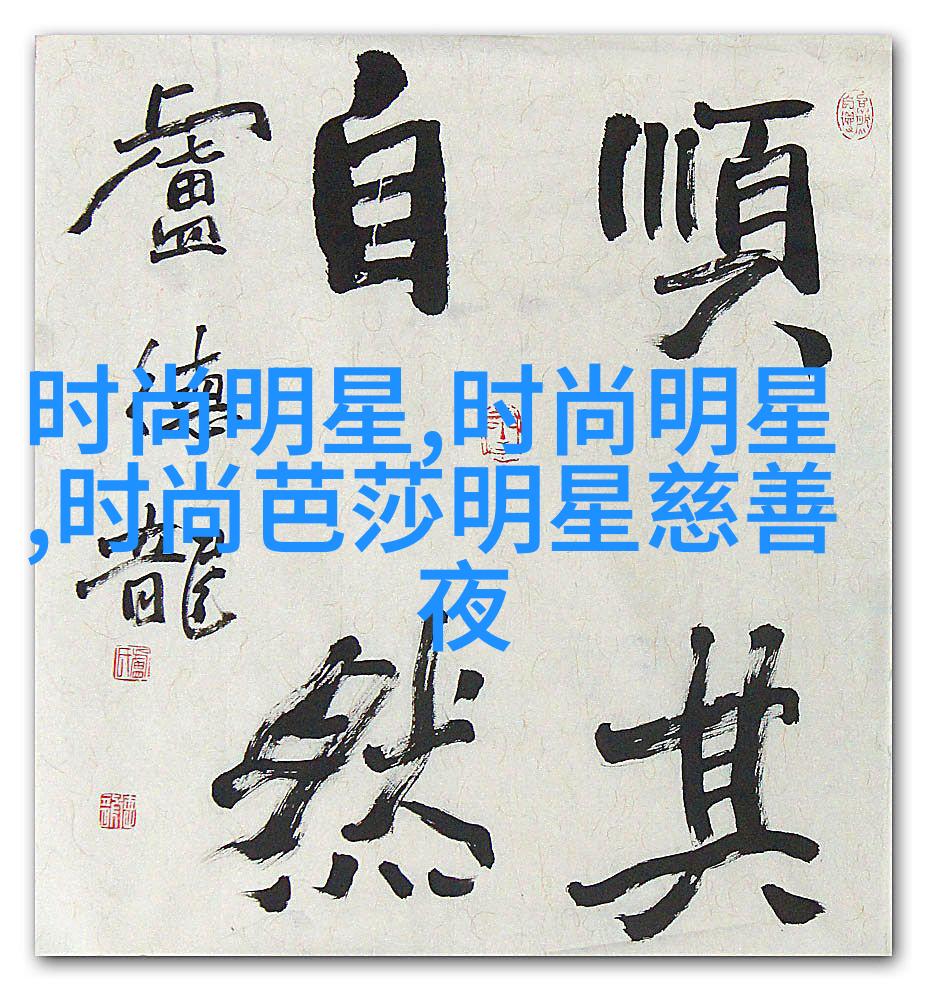 順其
自然
盧德龍
时尚明星,时尚明星
,时尚芭莎明星慈善
夜